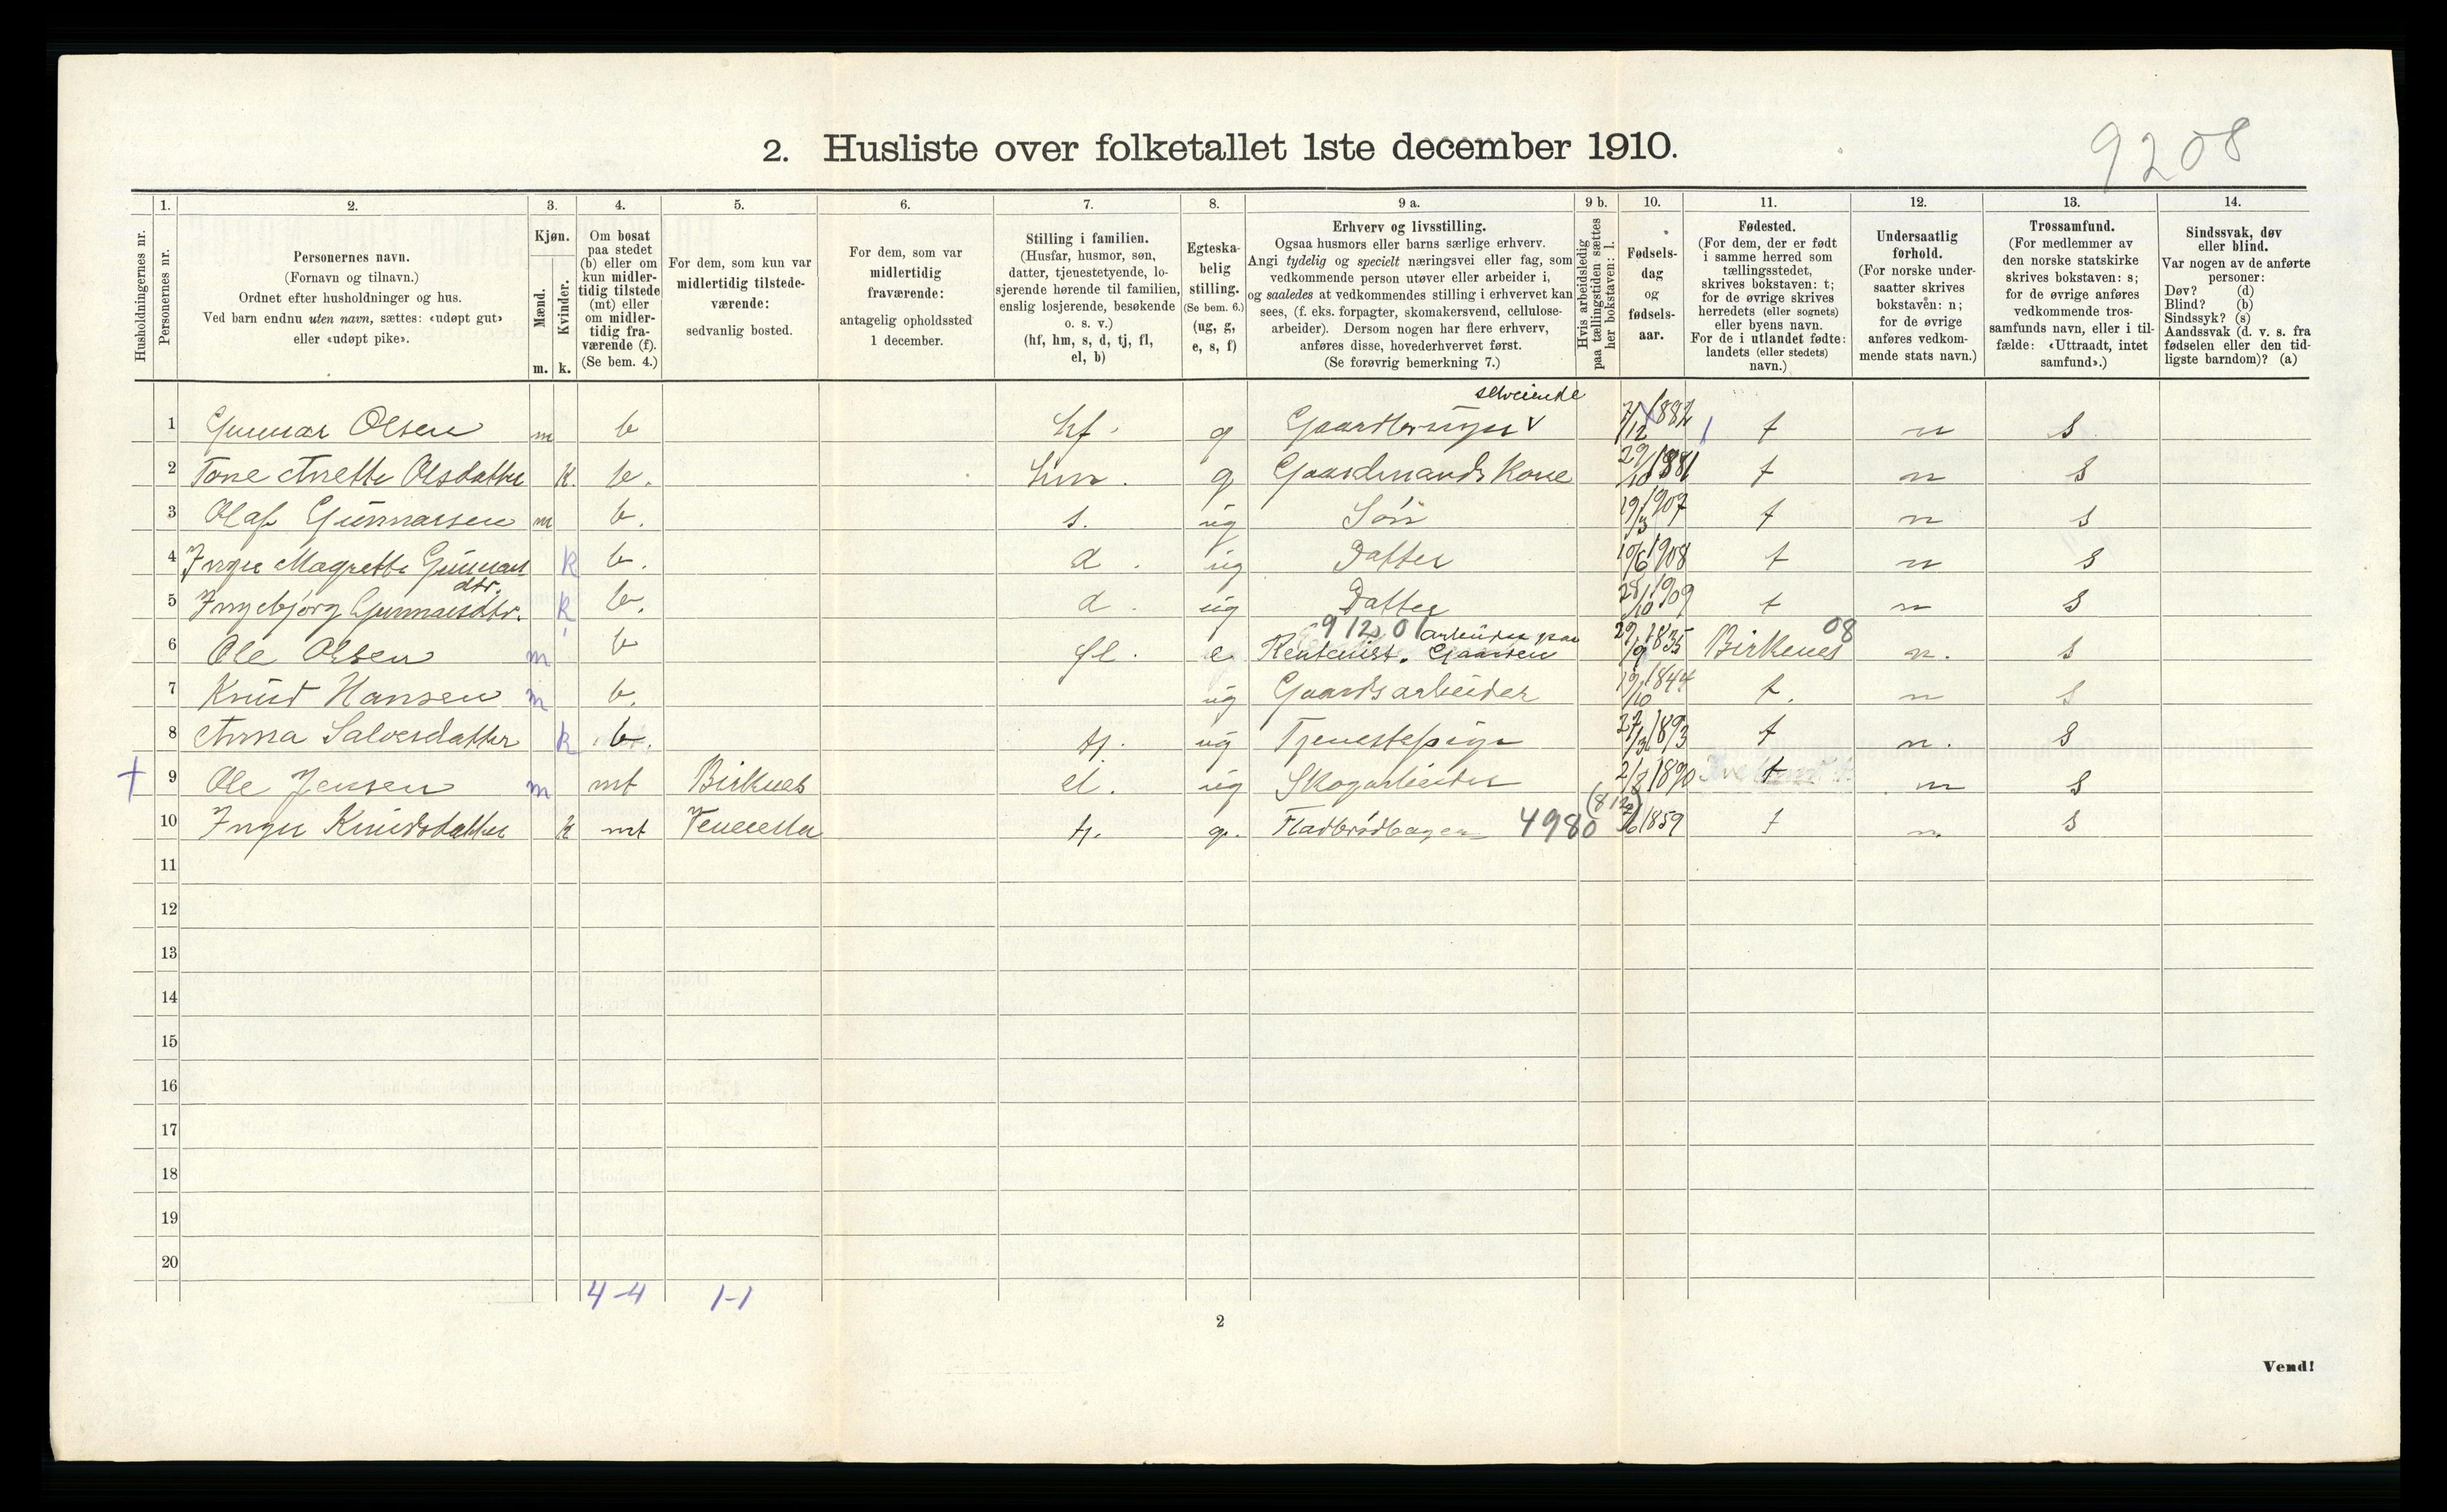 9208
2. Husliste over folketallet 1ste december 1910.
Husholdningernes nr.
1.
Personernes nr.
2.
Personernes navn.
(Fornavn og tilnavn.)
Ordnet efter husholdninger og hus.
Ved barn endnu uten navn, sættes: «udøpt gut»
eller «udøpt pike».
3.
Kjøn.
Mænd.
Kvinder.
m. k.
4.
Om bosat
paa stedet
(b) eller om
kun midler-
tidig tilstede
(mt) eller
om midler-
tidig fra-
værende (f).
(Se bem. 4.)
5.
For dem, som kun var
midlertidig tilstede-
værende:
sedvanlig bosted.
6.
For dem, som var
midlertidig
fraværende:
antagelig opholdssted
1 december.
7.
Stilling i familien.
(Husfar, husmor, søn,
datter, tjenestetyende, lo-
sjerende hørende til familien,
enslig losjerende, besøkende
o. s. v.)
(hf, hm, s, d, tj, fl,
el, b)
8.
Egteska-
belig
stilling.
(Se bem. 6.)
(ug, g,
e, s, f)
9 a.
Erhverv og livsstilling.
Ogsaa husmors eller barns særlige erhverv.
Angi tydelig og specielt næringsvei eller fag, som
vedkommende person utøver eller arbeider i,
og saaledes at vedkommendes stilling i erhvervet kan
sees, (f. eks. forpagter, skomakersvend, cellulose-
arbeider). Dersom nogen har flere erhverv,
anføres disse, hovederhvervet først.
(Se forøvrig bemerkning 7.)
9 b.
Hvis arbeidsledig
paa tællingstiden sættes
her bokstaven: l.
10.
Fødsels-
dag
og
fødsels-
aar.
11.
Fødested.
(For dem, der er født
i samme herred som
tællingsstedet,
skrives bokstaven: t;
for de øvrige skrives
herredets (eller sognets)
eller byens navn.
For de i utlandet fødte:
landets (eller stedets)
navn.)
12.
Undersaatlig
forhold.
(For norske under-
saatter skrives
bokstaven: n;
for de øvrige
anføres vedkom-
mende stats navn.)
13.
Trossamfund.
(For medlemmer av
den norske statskirke
skrives bokstaven: s;
for de øvrige anføres
vedkommende tros-
samfunds navn, eller i til-
fælde: «Uttraadt, intet
samfund».)
14.
Sindssvak, døv
eller blind.
Var nogen av de anførte
personer:
Døv? (d)
Blind? (b)
Sindssyk? (s)
Aandssvak (d. v. s. fra
fødselen eller den tid-
ligste barndom)? (a)
selveiende
1 Gunnar Olsen m b hf. g Gaardbruger v 7/12 1882 t n s
2 Tone Anette Olsdatter k. b. hm. g Gaardmands Kone 29/10 1881 t n s
3 Olaf Gunnarsen m b. s. ug Søn 19/3 1907 t n s
4 Inger Magrethe Gunnars k b. d. ug Datter 10/6 1908 t n s
dtr.
5 Ingebjørg Gunnarsdtr. k b. d. ug Datter 28/10 1909 t n s
91201 arbeider paa 08
6 Ole Olsen m b fl. e Gaarden 29/9 1835 Birkenes n. s
7 Knud Hansen m b. ug Gaardsarbeider 19/10 1844 t. n s
8 Anna Salvesdatter k b. tj. ug Tjenestepige 27/3 1893 t n. s
† 9 Ole Jensen m mt Birknes el. ug Skogarbeider 2/8 1890 t n s
(812)
10 Inger Knudsdatter k mt Vennesla tj. g. Fladbrødbagen 4980 1859 t n s
11
12
13
14
15
16
17
18
19
20
4-4 1-1
2
Vend!